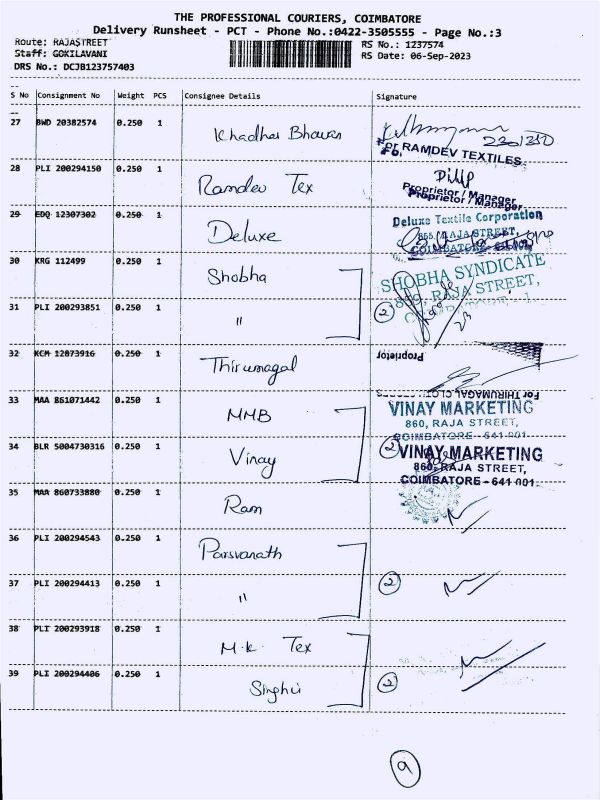 THE PROFESSIONAL COURIERS, COIMBATORE
Delivery Runsheet - PCT - Phone No.:0422-3505555 - Page No.:3
Route: RAJASTREET
RS No.: 1237574
Staff: GOKILAVANI
RS Date: 06-Sep-2023
DRS No.: DCJB123757403
S No Consignment No Weight PCS Consignee Details Signature
27 BWD 20382574 0.250 1 Khadhar Bhavan
For RAMDEV TEXTILES
28 PLI 200294150 0.250 1 Ramdev Tex
Dilip
Proprietor / Manager
Proprietor / Manager
29 EDQ 12307302 0.250 1 Deluxe
Deluxe Textile Corporation
RAJA STREET,
COIMBATORE
30 KRG 112499 0.250 1 Shobha
SHOBHA SYNDICATE
859, RAJA STREET,
31 PLI 200293851 0.250 1 " 2
32 KCM 12873916 0.250 1 Thirumagal
Proprietor
For THIRUMAGAL
33 MAA 861071442 0.250 1 MMB
VINAY MARKETING
860, RAJA STREET,
COIMBATORE - 641 001
34 BLR 5004730316 0.250 1 Vinay 2
VINAY MARKETING
860, RAJA STREET,
COIMBATORE - 641 001.
35 MAA 860733880 0.250 1 Ram
36 PLI 200294543 0.250 1 Parsvanath
37 PLI 200294413 0.250 1 " 2
38 PLI 200293918 0.250 1 M.K. Tex
39 PLI 200294406 0.250 1 Singhvi 2
9